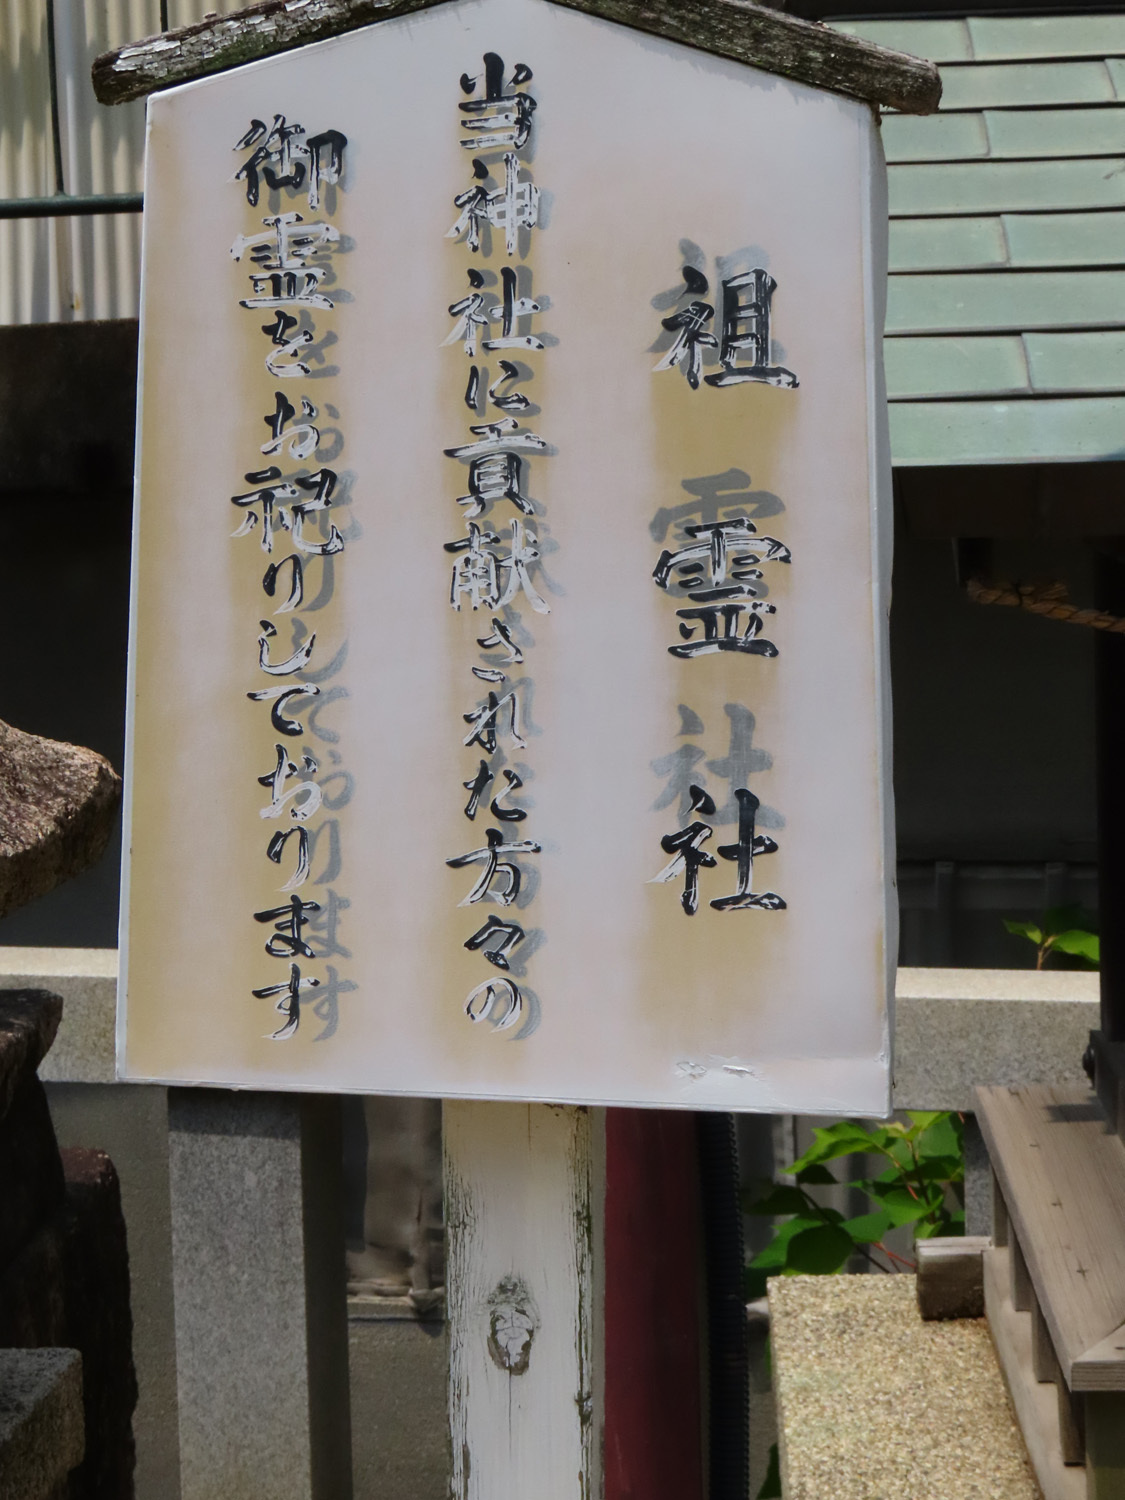 祖霊社
当神社に貢献された方々の
御霊をお祀りしております